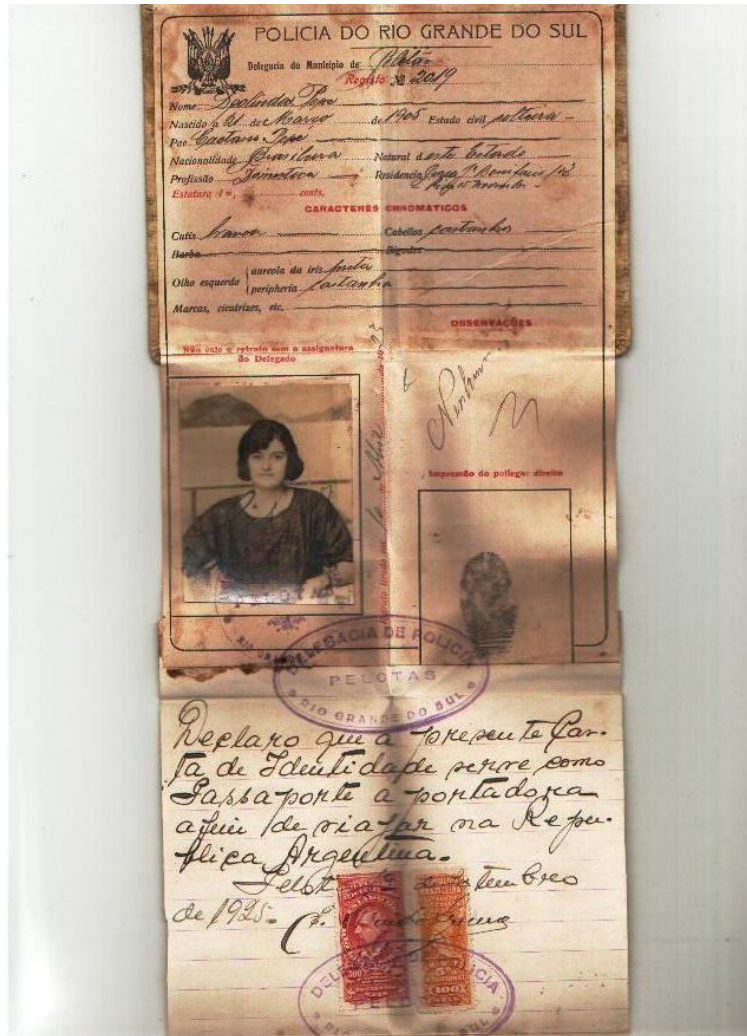 POLICIA DO RIO GRANDE DO SUL
Delegacia do Municipio de
Registo Nº 2019
Nome Deolinda Pepe
Nascido a 21 de Março de 1905 Estado civil solteira
Pae Caetano Pepe
Nacionalidade Brasileira Natural deste Estado
Profissão Domestica Residencia
Estatura 1m, cents,
CARACTERES CHROMATICOS
Cutis branca Cabellos castanhos
Barba Bigodes
Olho esquerdo aureola da iris preta
peripheria castanha
Marcas, cicatrizes, etc.
OBSERVAÇÕES
Não vale o retrato sem a assignatura
do Delegado
Impressão do pollegar direito
DELEGACIA DE POLICIA
PELOTAS
RIO GRANDE DO SUL
Declaro que a presente Car-
ta de Identidade serve como
Passaporte a portadora
afim de viajar na Repu-
blica Argentina.
de 1925
300
400
DELEGACIA
RIO GRANDE DO SUL